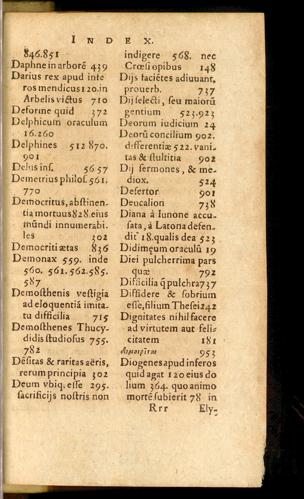 INDEX.
846.851
Daphne in arborē 439
Darius rex apud infe
ros mendicus 120. in
Arbelis victus 710
Deforme quid 372
Delphicum oraculum
16.260
Delphines 512 870.
901
Delus ins. 56 57
Demetrius philos. 561.
770
Democritus, abstinen-
tia mortuus 828. eius
mūndi innumerabi-
les 302
Democriti ætas 836
Demonax 559. inde
560. 561. 562. 585.
587
Demosthenis vestigia
ad eloquentiā imita-
tu difficilia 715
Demosthenes Thucy-
didis studiosus 755.
782
Dēsitas & raritas aëris,
rerum principia 302
Deum vbiq. esse 295.
sacrificijs nostris non
indigere 568. nec
Crœsi opibus 148
Dijs faciētes adiuuant,
prouerb. 737
Dij selecti, seu maiorū
gentium 523.923
Deorum iudicium 24
Deorū concilium 902.
differentiæ 522. vani-
tas & stultitia 902
Dij sermones, & me-
diox. 524
Desertor 901
Deucalion 738
Diana à Iunone accu-
sata, à Latona defen-
dit 18. qualis dea 523
Didimęum oraculū 19
Diei pulcherrima pars
quæ 792
Difficilia q̃ pulchra 737
Diffidere & sobrium
esse, filium Thesei 242
Dignitates nihil facere
ad virtutem aut feli-
citatem 181
953
Diogenes apud inferos
quid agat 120 eius do
lium 364. quo animo
mortē subierit 78 in
Rrr Ely-